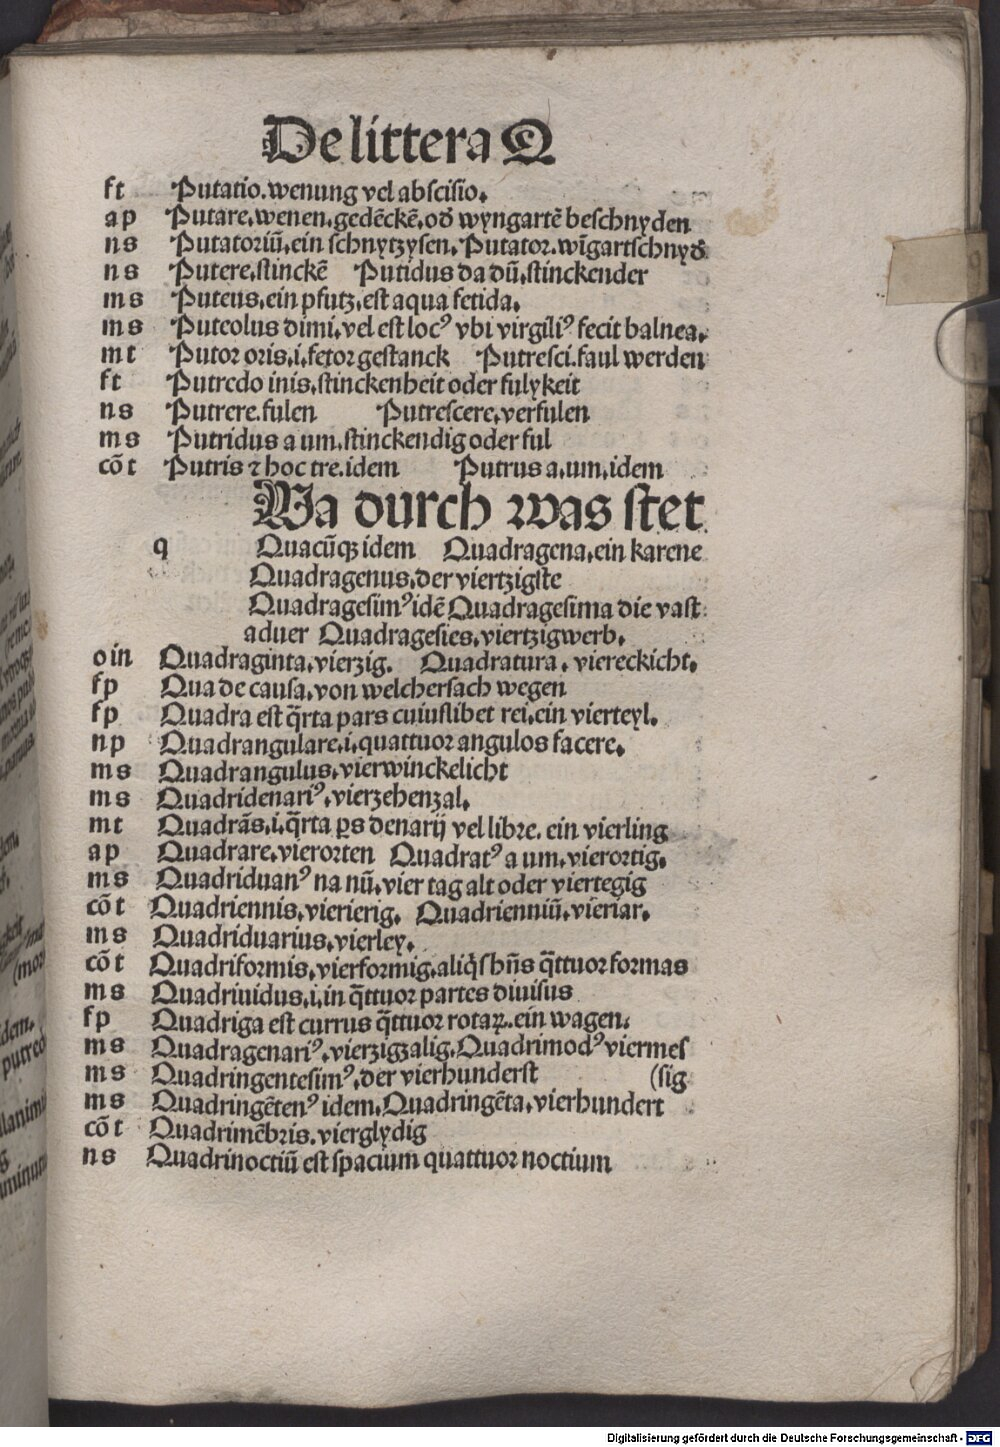 De littera Q
ft Putatio.wenung vel abscisio.
ap Putare.wenen.gedēckē.od̄ wyngartē beschnyden
ns Putatoriū.ein schnytzysen.Putator.wīgartschnyd̄
ns Putere.stinckē Putidus da dū.stinckender
ms Puteus.ein pfutz.est aqua fetida.
ms Puteolus dimi.vel est locꝰ vbi virgiliꝰ fecit balnea.
mt Putor oris.i.fetor gestanck Putresci.faul werden
ft Putredo inis.stinckenheit oder fulykeit
ns Putrere.fulen Putrescere.verfulen
ms Putridus a um.stinckendig oder ful
cōt Putris ⁊ hoc tre.idem Putrus a.um.idem
Wa durch was stet
q Quacūqꝫ idem Quadragena.ein karene
Quadragenus.der viertzigste
Quadragesimꝰ idē Quadragesima die vast
aduer Quadragesies.viertzigwerb.
oin Quadraginta.vierzig. Quadratura.viereckicht.
fp Qua de causa.von welchersach wegen
fp Quadra est q̄rta pars cuiuslibet rei.ein vierteyl.
np Quadrangulare.i.quattuor angulos facere.
ms Quadrangulus.vierwinckelicht
ms Quadridenariꝰ.vierzehenzal.
mt Quadrās.i.q̄rta ꝑs denarij vel libre.ein vierling
ap Quadrare.vierorten Quadratꝰ a um.vierortig.
ms Quadriduanꝰ na nū.vier tag alt oder viertegig
cōt Quadriennis.vierierig. Quadrienniū.vieriar.
ms Quadriduarius.vierley.
cōt Quadriformis.vierformig.aliq̇s hn̄s q̄ttuor formas
ms Quadriuidus.i.in q̄ttuor partes diuisus
fp Quadriga est currus q̄ttuor rotaꝝ.ein wagen.
ms Quadragenariꝰ.vierzigzalig.Quadrimodꝰ viermes
ms Quadringentesimꝰ.der vierhunderst (sig
ms Quadringētenꝰ idem.Quadringēta.vierhundert
cōt Quadrimēbris.vierglydig
ns Quadrinoctiū est spacium quattuor noctium
Digitalisierung gefördert durch die Deutsche Forschungsgemeinschaft - DFG